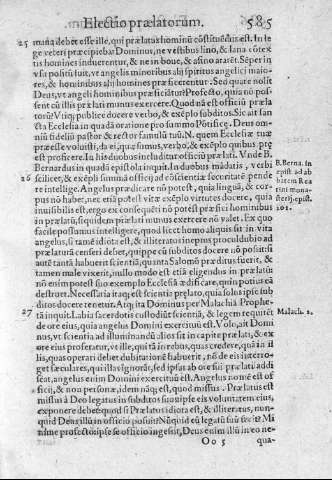 Electio prælatorum. 585
25 mana debet esse ille, qui prælatus hominū cōstituēdus est. In le
ge veteri præcipiebat Dominus, ne vestibus lino, & lana cōtex
tis homines induerentur, & ne in boue, & asino ararēt. Semper in
vsu positū fuit, vt angelis minoribus alij spiritus angelici maio
res, & hominibus alij homines præficerentur. Sed quare nolit
Deus, vt angeli hominibus præficiātur? Profectò, quia nō pos-
sent cū illis prælati munus exercere. Quod nā est officiū præla
torū? Vtiq; publicè docere verbo, & exēplo subditos. Sic ait san
cta Ecclesia in quadā oratione pro summo Pōtifice. Deus om-
niū fidelium pastor & rector famulū tuū N. quem Ecclesiæ tuæ
præesse voluisti, da ei, quæsumus, verbo, & exēplo quibus præ
est proficere. In his duobus includitur officiū prælati. Vnde B.
Bernardus in quadā epistola inquit. In duobus mādatis, verbi
26 scilicet, & exēpli summā officij ad cōscientiæ securitatē pende
re intellige. Angelus prædicare nō potest, quia linguā, & cor-
pus nō habet, nec etiā potest vitæ exēplo virtutes docere, quia
inuisibilis est, ergo ex consequēti nō potest præfici hominibus
in prælatū, siquidem prælati munus exercere nō valet. Ex quo
facile possumus intelligere, quod licet homo aliquis sit in vita
angelus, si tamē idiota est, & illiteratus ineptus proculdubio ad
prælaturā censeri debet, quippe cū subditos docere nō possit: si
autē tantā habuerit scientiā, quanta Salomō præditus fuerit, &
tamen malè vixerit, nullo modo est etiā eligendus in prælatū:
nō enim potest suo exemplo Ecclesiā ædificare, quin potius eā
destruet. Necessaria itaq; est scientia prælato, quia sola ipse sub
ditos docere tenetur. Ait ita Dominus per Malachiā Prophe-
27 tā inquit. Labia sacerdotis custodiūt scientiā, & legem requirēt
de ore eius, quia angelus Domini exercituū est. Volo, ait Domi
nus, vt scientia ad illuminādū alios sit in capite prælati, & ex
ore eius proferatur, vt ille, qui tā in rebus, quas credere, quā in il
lis, quas operari debet dubitationē habuerit, nō de eis interro-
get sæculares, qui illas ignorāt, sed ipsas ab ore sui prælati adi
scat, angelus enim Domini exercituū est. Angelus nomē est of-
ficij, & non personæ, idem nāq; est, quod missus. Prælatus est
missus à Deo legatus in subditos suos: ipse eis voluntatem eius,
exponere debet: quod si Prælatus idiota est, & illiteratus, nun-
quid Deus illū in officio posuit? Nūquid eū legatū suū fecit? Mi
nimè profectò: ipse se officio ingessit, Deus enim illū in eo ne-
Oo 5 qua-
B. Berna. in
epist. ad ab
batem Rea
tini mona-
sterij. epist.
201.
Malach. 2.